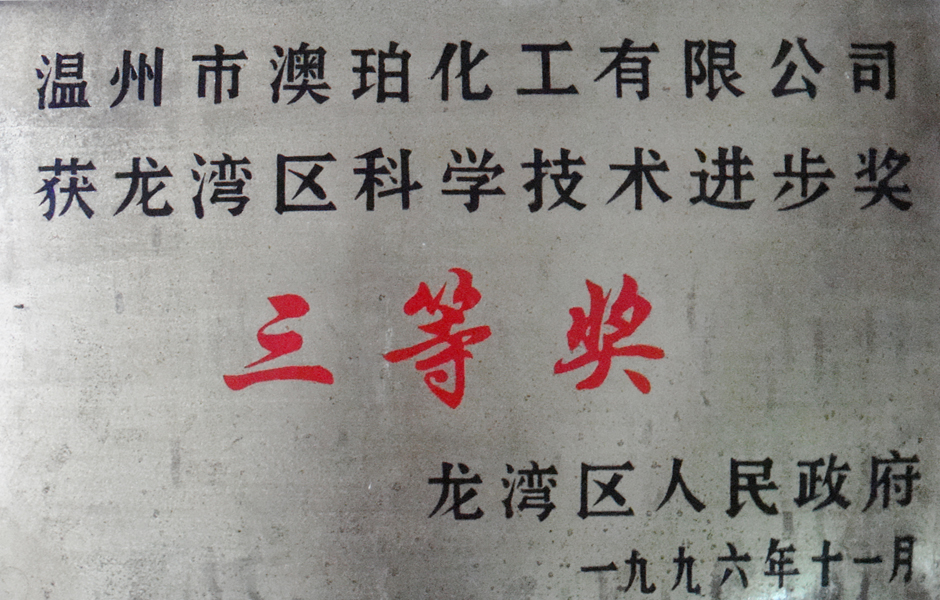 温州市澳珀化工有限公司
获龙湾区科学技术进步奖
三等奖
龙湾区人民政府
一九九六年十一月